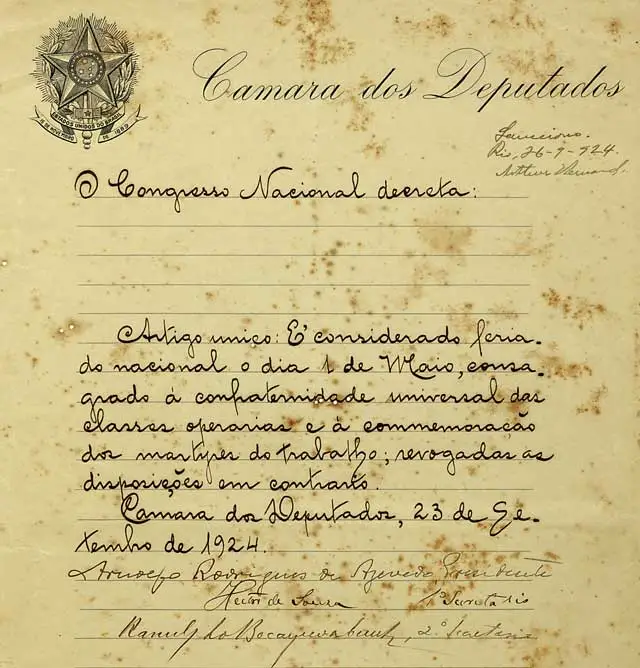 Camara dos Deputados
ESTADOS UNIDOS DO BRASIL
15 DE NOVEMBRO DE 1889
Sancciono.
Rio, 26-9-924.
Arthur Bernardes
O Congresso Nacional decreta:
Artigo unico: E' considerado feria-
do nacional o dia 1 de Maio, consa-
grado á confraternidade universal das
classes operarias e á commemoração
dos martyres do trabalho; revogadas as
disposições em contrario.
Camara dos Deputados, 23 de Se-
tembro de 1924.
Arnolfo Rodrigues de Azevedo Presidente
Heitor de Souza 1º Secretario
Ranulpho Bocayuva Cunha, 2º Secretario